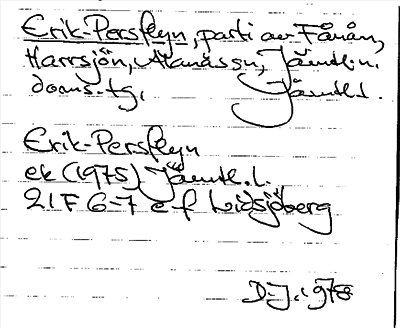 Erik-Persflyn, parti av Fånån,
Harrsjön, Alanäs sn, Jämtl.n.
doms.tg, Jämtl.l.
Erik-Persflyn
ek (1975) Jämtl.l.
21F 6-7 e-f Lidsjöberg
D.J. 1978